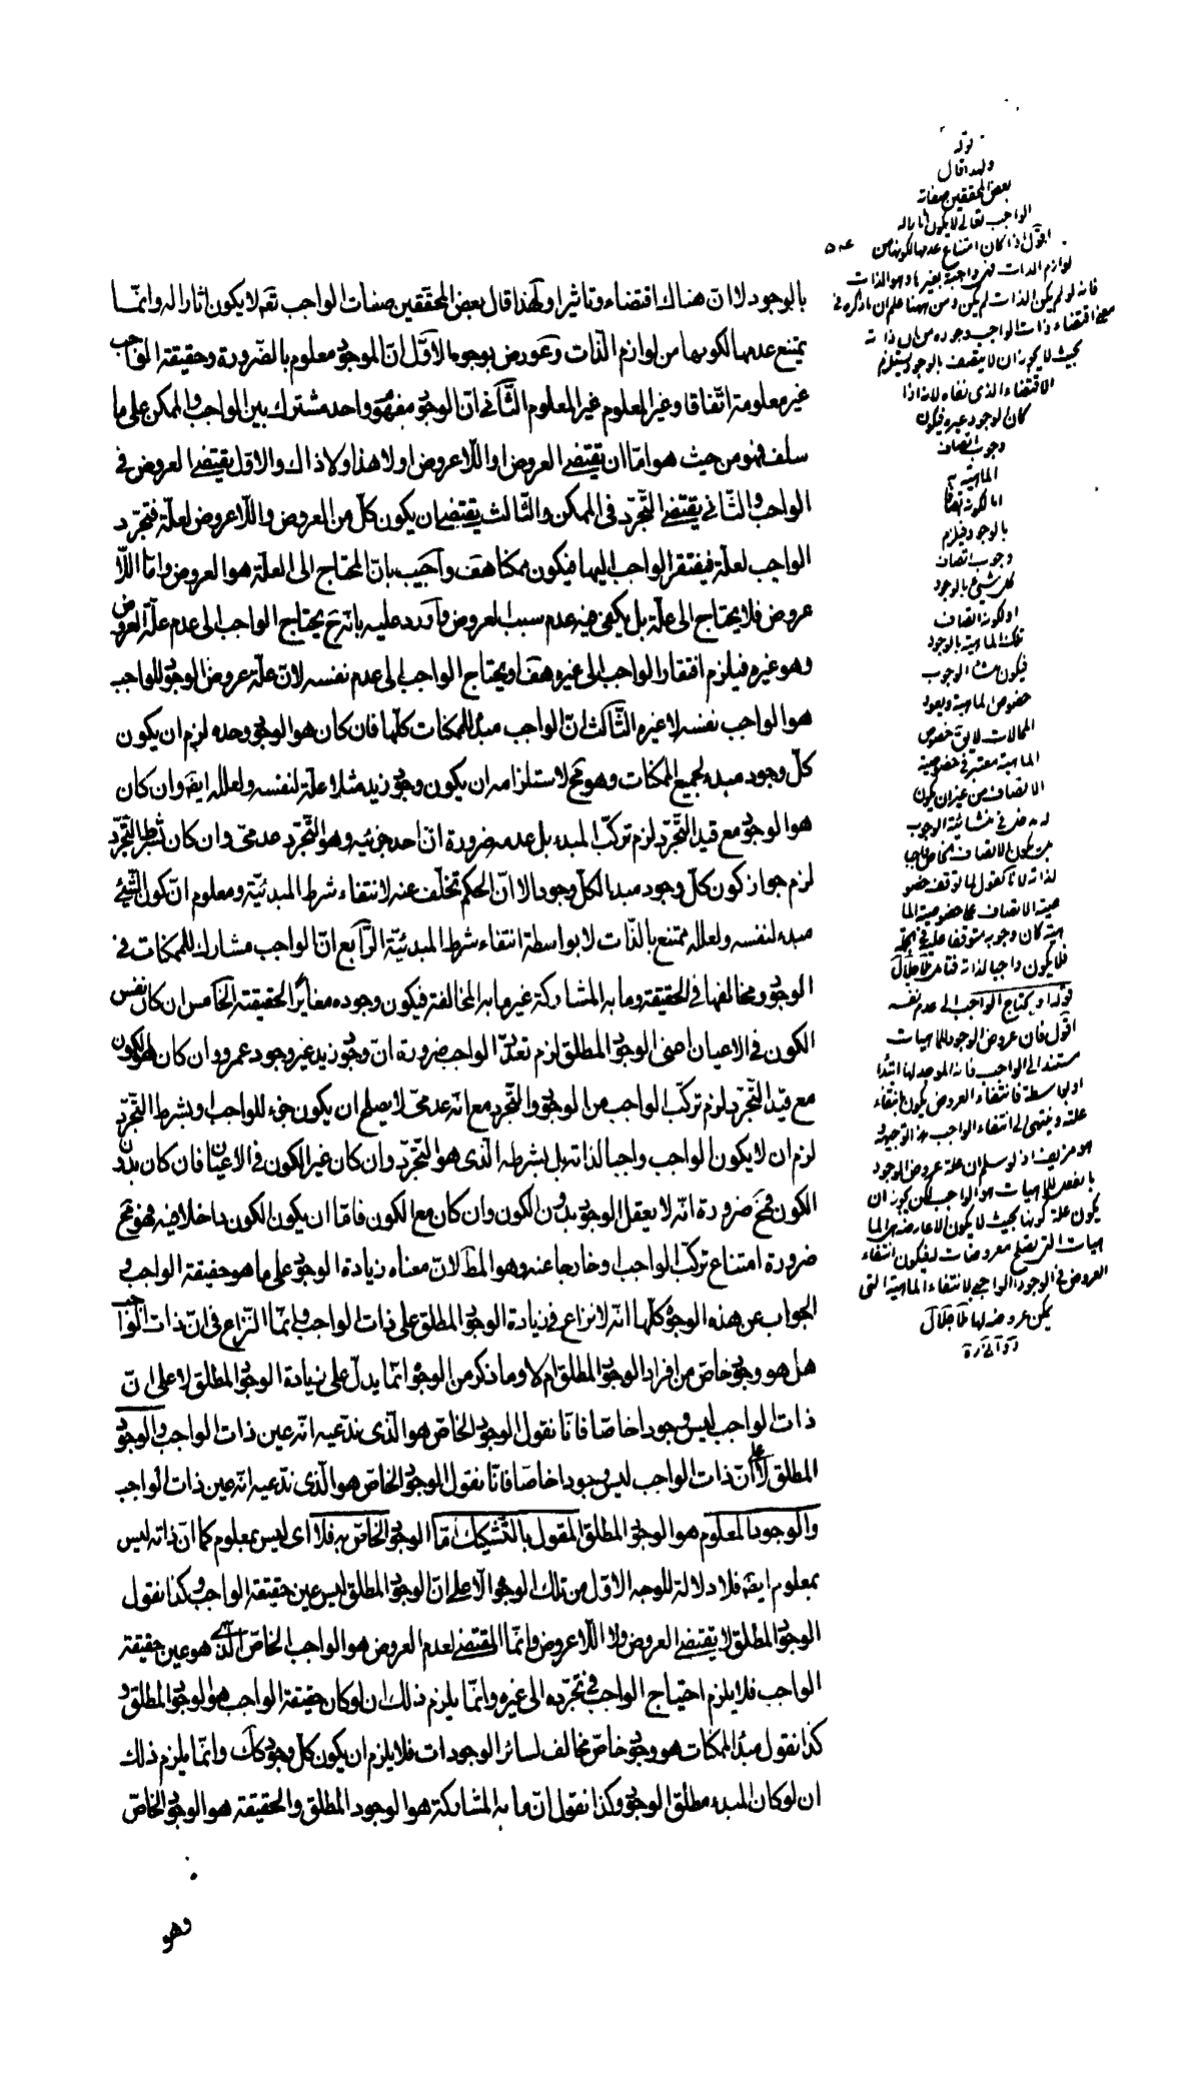 بالوجود لا ان هناك اقتضاء وتاثيرا ولهذا قال بعض المحققين صفات الواجب تعه لا يكون اثارا له وانما
يمتنع عدمها لكونها من لوازم الذات وعورض بوجوه الاول ان الوجود معلوم بالضرورة وحقيقة الواجب
غير معلومة اتفاقا وغير المعلوم غير المعلوم الثاني ان الوجود مفهوم واحد مشترك بين الواجب والممكن على ما
سلف فهو من حيث هو اما ان يقتضى العروض او اللاعروض او لا هذا ولا ذاك والاول يقتضى العروض في
الواجب والثاني يقتضى التجرد في الممكن والثالث يقتضى ان يكون كل من العروض واللاعروض لعلة فتجرد
الواجب لعلة فيفتقر الواجب اليها فيكون ممكنا هف واجيب بان المحتاج الى العلة هو العروض واما اللا
عروض فلا يحتاج الى علة بل يكفى فيه عدم سبب العروض واورد عليه بانه ح يحتاج الواجب الى عدم علة العروض
وهو غيره فيلزم افتقار الواجب الى غيره هف او يحتاج الواجب الى عدم نفسه لان علة عروض الوجود للواجب
هو الواجب نفسه لا غيره الثالث ان الواجب مبدأ للممكنات كلها فان كان هو الوجود وحده لزم ان يكون
كل وجود مبدء لجميع الممكنات وهو مح لاستلزامه ان يكون وجود زيد مثلا علة لنفسه ولعلله ايضه وان كان
هو الوجود مع قيد التجرد لزم تركب المبدء بل عدمه ضرورة ان احد جزئيه وهو التجرد عدمى وان كان بشرط التجرد
لزم جواز كون كل وجود مبدا لكل وجود الا ان الحكم تخلف عنه لانتفاء شرط المبدئية ومعلوم ان كون الشئ
مبدء لنفسه ولعلله ممتنع بالذات لا بواسطة انتفاء شرط المبدئية الرابع ان الواجب مشارك للممكنات في
الوجود ومخالفها في الحقيقة وما به المشاركة غير ما به المخالفة فيكون وجوده مغايرا لحقيقته الخامس ان كان نفس
الكون في الاعيان اعنى الوجود المطلق لزم تعدد الواجب ضرورة ان وجود زيد غير وجود عمرو وان كان هو الكون
مع قيد التجرد لزم تركب الواجب من الوجود والتجرد مع انه عدمى لا يصلح ان يكون جزء للواجب او بشرط التجرد
لزم ان لا يكون الواجب واجبا لذاته بل بشرطه الذى هو التجرد وان كان غير الكون في الاعيان فان كان بدون
الكون فمح ضرورة انه لا يعقل الوجود بدون الكون وان كان مع الكون فاما ان يكون الكون داخلا فيه فهو مح
ضرورة امتناع تركب الواجب او خارجا عنه وهو المط لان معناه زيادة الوجود على ما هو حقيقة الواجب و
الجواب عن هذه الوجوه كلها انه لا نزاع في زيادة الوجود المطلق على ذات الواجب وانما النزاع في ان ذات الواجب
هل هو وجود خاص من افراد الوجود المطلق ام لا وما ذكر من الوجوه انما يدل على زيادة الوجود المطلق لا على ان
ذات الواجب ليس وجودا خاصا فانا نقول الوجود الخاص هو الذى ندعيه انه عين ذات الواجب والوجود
المطلق لا على ان ذات الواجب ليس وجودا خاصا فانا نقول الوجود الخاص هو الذى ندعيه انه عين ذات الواجب
والوجود المعلوم هو الوجود المطلق المقول بالتشكيك اما الوجود الخاص به فلا اى ليس بمعلوم كما ان ذاته ليس
بمعلوم ايضه فلا دلالة للوجه الاول من تلك الوجوه الا على ان الوجود المطلق ليس عين حقيقة الواجب وكذا نقول
الوجود المطلق لا يقتضى العروض ولا اللاعروض وانما المقتضى لعدم العروض هو الواجب الخاص الذى هو عين حقيقة
الواجب فلا يلزم احتياج الواجب في تجرده الى غيره وانما يلزم ذلك ان لو كان حقيقة الواجب هو الوجود المطلق و
كذا نقول مبدأ الممكنات هو وجود خاص مخالف لسائر الوجودات فلا يلزم ان يكون كل وجود كك وانما يلزم ذلك
ان لو كان المبدء مطلق الوجود وكذا نقول ان ما به المشاركة هو الوجود المطلق والحقيقة هو الوجود الخاص
وهو
قوله
ولهذا قال
بعض المحققين صفات
الواجب تعالى لا يكون اثارا له
اقول اذا كان امتناع عدمها لكونها من
لوازم الذات فهى واجبة بغيرها وهو الذات
فانه لو لم يكن الذات لم يكن ومن ههنا علم ان ما ذكره في
معنى اقتضاء ذات الواجب وجوده من ان ذاته
بحيث لا يجوز ان لا يتصف بالوجود يستلزم
الاقتضاء الذى نفاه لانه اذا
كان الوجود غيره فيكون
وجوب اتصاف
الماهية به
اما لكونه اتصافا
بالوجود فيلزم
وجوب اتصاف
كل شئ بالوجود
او لكونه اتصاف
تلك الماهية بالوجود
فيكون منشأ الوجوب
خصوص الماهية ويعود
المحالات لا يق خصوص
الماهية معتبر في خصوصية
الاتصاف من غير ان يكون
له مدخل في منشائية الوجوب
لذاته لانا نقول لما توقف خصو
صية الاتصاف على خصوصية الما
هية كان وجوبه متوقفا عليه في الجملة
فلا يكون واجبا لذاته فتامل جلال
قوله او يحتاج الواجب الى عدم نفسه
اقول فان عروض الوجود للماهيات
مستند الى الواجب فانه الموجد لها ابتداء
او بواسطة فانتفاء العروض يكون بانتفاء
علته وينتهى الى انتفاء الواجب هذا توجيهه و
هو مزيف اذ لو سلم ان علة عروض الوجود
بالفعل للماهيات هو الواجب لكن يجوز ان
يكون علة كونها بحيث لا يكون الا عارضة هى الما
هيات التى يصلح معروضات لها فيكون انتفاء
العروض في الوجود الواجبى لانتفاء الماهية التى
يمكن عروضه لها جلال